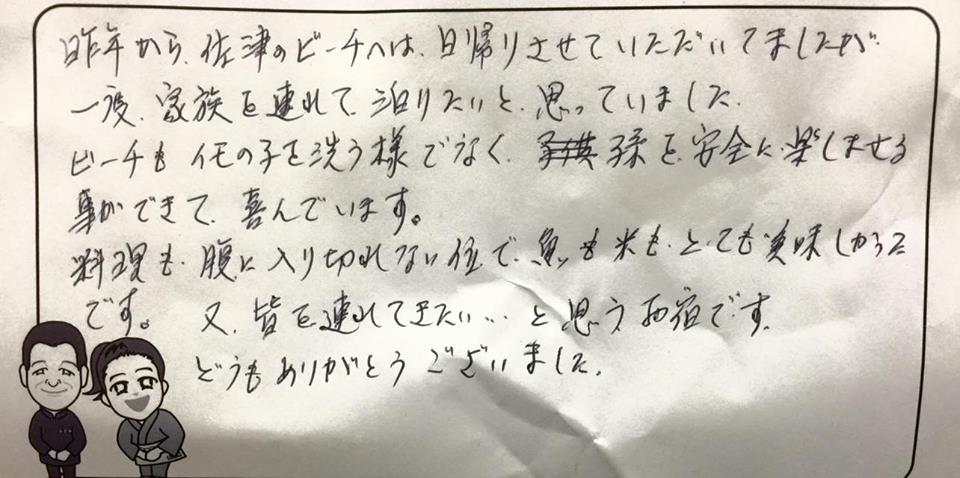 昨年から、佐津のビーチへは、日帰りさせていただいてましたが
一度、家族を連れて、泊りたいと、思っていました。
ビーチも イモの子を洗う様でなく、孫を、安全に、楽しませる
事ができて、喜んでいます。
料理も、腹に入り切れない位で、魚も 米も、とても美味しかった
です。 又、皆を連れてきたい…と思うお宿です。
どうもありがとうございました。